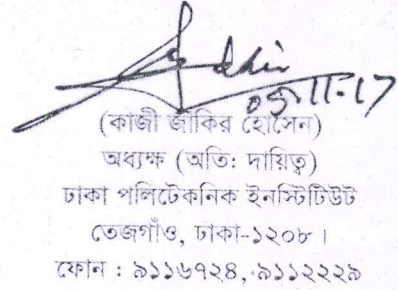 ০৫-11-17
(কাজী জাকির হোসেন)
অধ্যক্ষ (অতি: দায়িত্ব)
ঢাকা পলিটেকনিক ইনস্টিটিউট
তেজগাঁও, ঢাকা-১২০৮।
ফোন : ৯১১৬৭২৪, ৯১১২২২৯